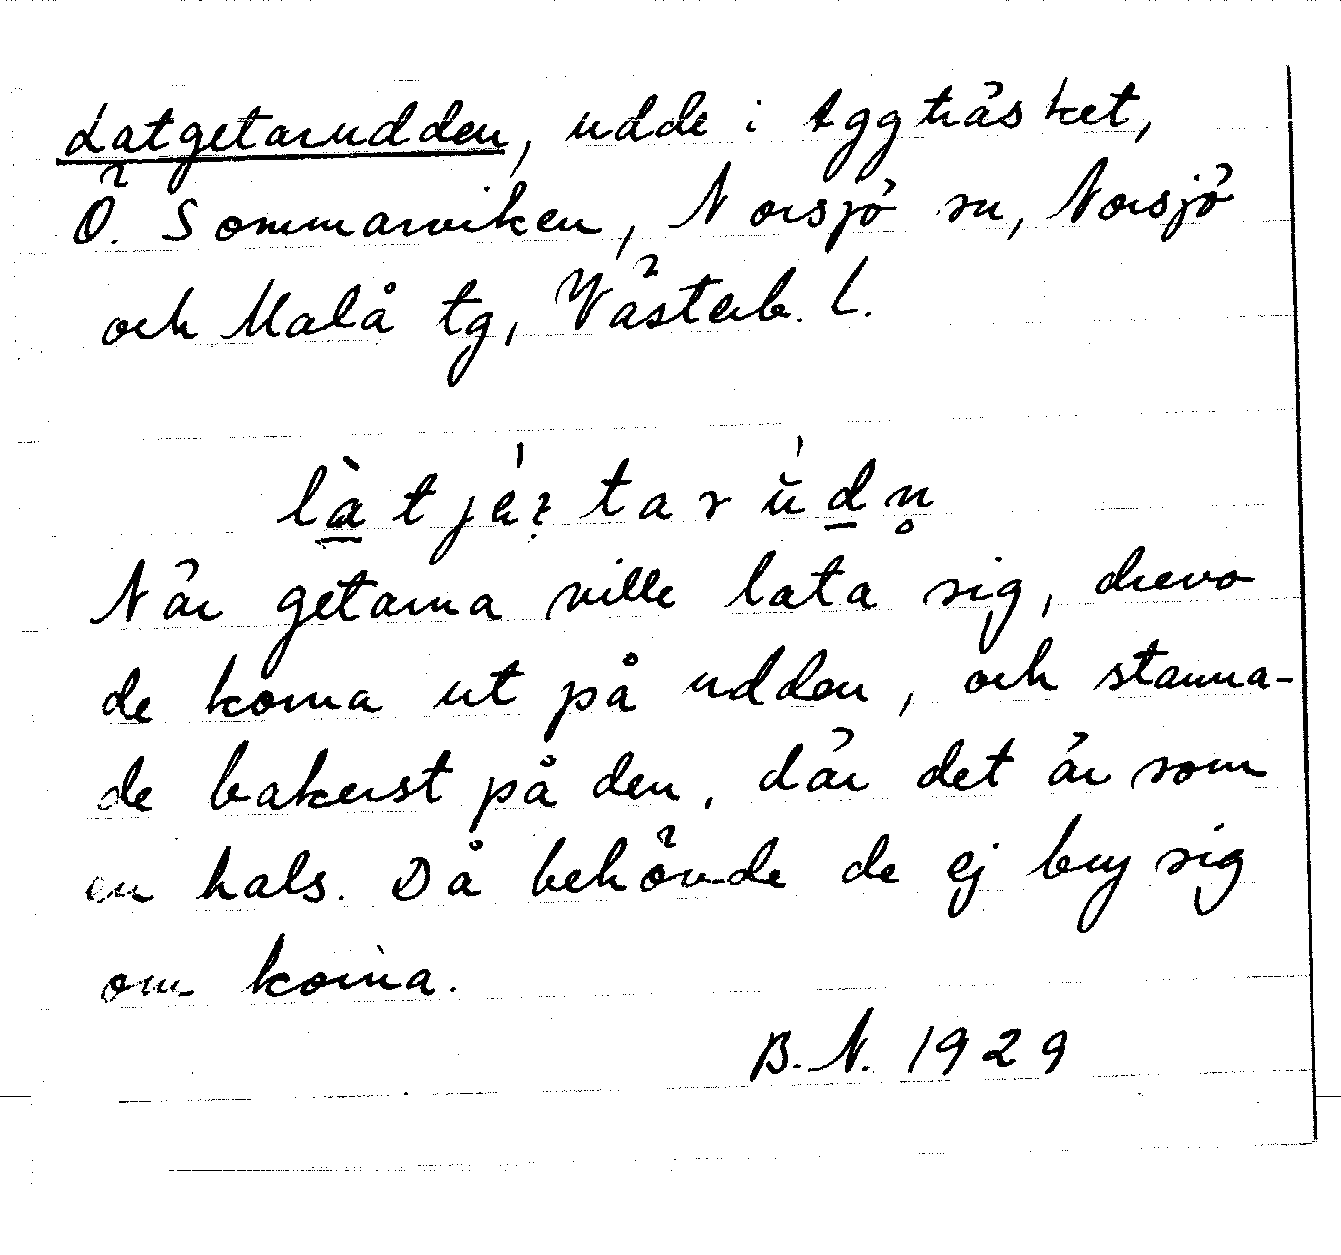 Latgetarudden, udde i Aggträsket,
Ö. Sommarviken, Norsjö sn, Norsjö
och Malå tg, Västerb. l.
làtjéտarùdn̥
När getarna ville lata sig, drevo
de korna ut på udden, och stanna-
de bakerst på den, där det är som
en hals. Då behövde de ej bry sig
om korna.
B.N. 1929